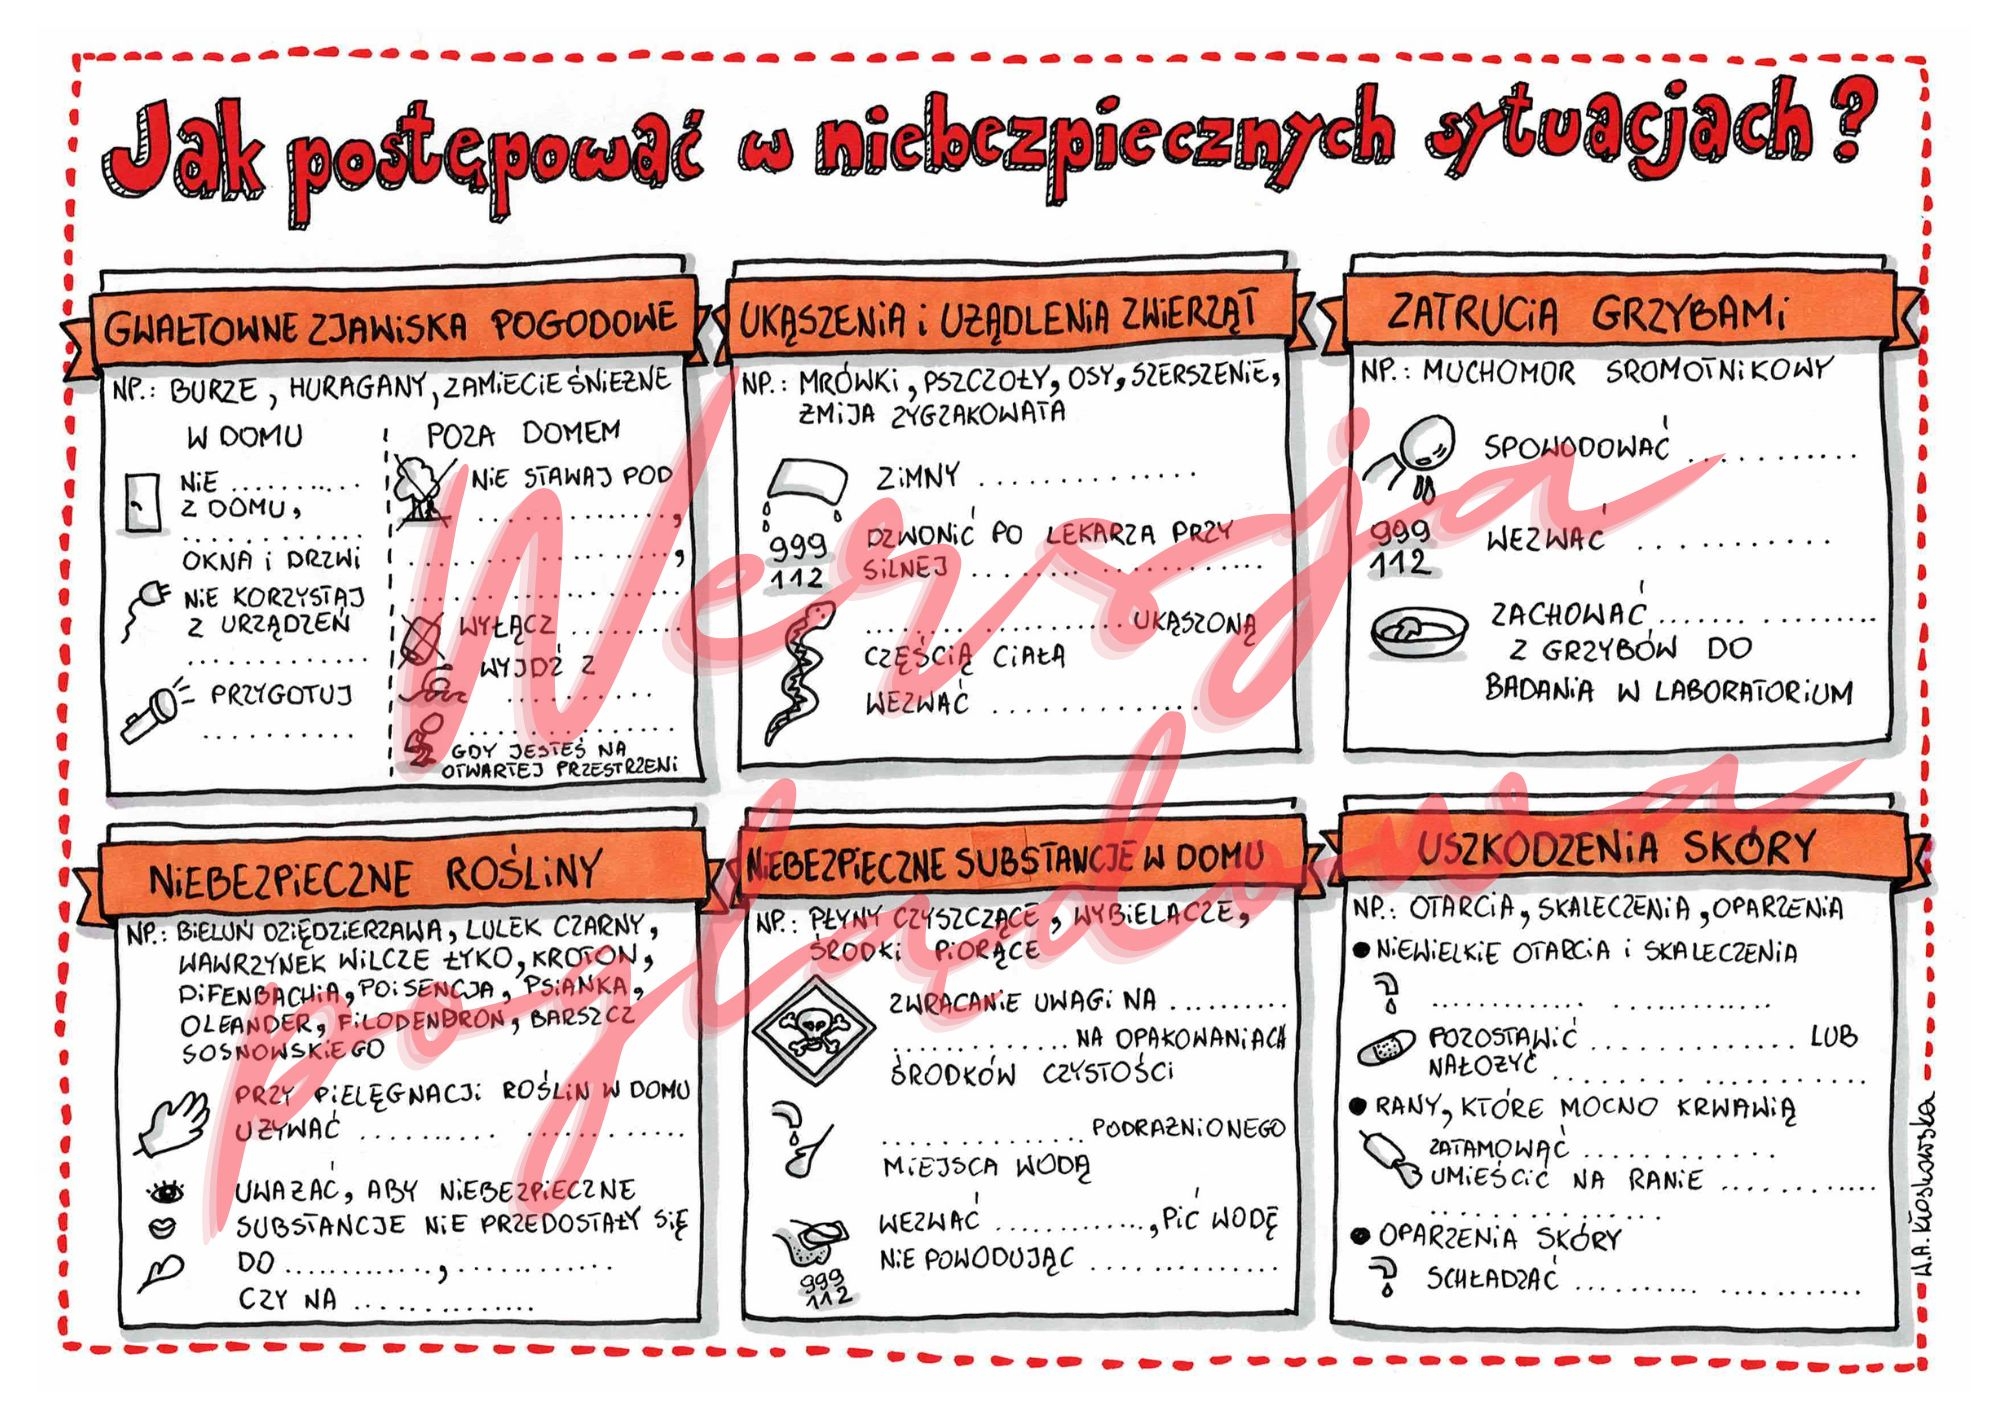 Jak postępować w niebezpiecznych sytuacjach?
GWAŁTOWNE ZJAWISKA POGODOWE
NP.: BURZE, HURAGANY, ZAMIECIE ŚNIEŻNE
W DOMU
NIE ..........
Z DOMU,
..............
OKNA i DRZWI
NIE KORZYSTAJ
Z URZĄDZEŃ
.............
PRZYGOTUJ
...........
POZA DOMEM
NIE STAWAJ POD
................,
....................,
....................
WYŁĄCZ .........
WYJDŹ Z
.............
.............
GDY JESTEŚ NA
OTWARTEJ PRZESTRZENI
UKĄSZENIA i UŻĄDLENIA ZWIERZĄT
NP.: MRÓWKI, PSZCZOŁY, OSY, SZERSZENIE,
ŻMIJA ZYGZAKOWATA
ZIMNY ...............
999
112
DZWONIĆ PO LEKARZA PRZY
SILNEJ ......... ............
..................... UKĄSZONĄ
CZĘŚCIĄ CIAŁA
WEZWAĆ ...............
ZATRUCIA GRZYBAMI
NP.: MUCHOMOR SROMOTNIKOWY
SPOWODOWAĆ ............
999
112
WEZWAĆ .............
ZACHOWAĆ ....... ..........
Z GRZYBÓW DO
BADANIA W LABORATORIUM
NIEBEZPIECZNE ROŚLINY
NP.: BIELUŃ DZIĘDZIERZAWA, LULEK CZARNY,
WAWRZYNEK WILCZE ŁYKO, KROTON,
DIFENBACHIA, POISENCJA, PSIANKA,
OLEANDER, FILODENDRON, BARSZCZ
SOSNOWSKIEGO
PRZY PIELĘGNACJI ROŚLIN W DOMU
UŻYWAĆ .......... ............
UWAŻAĆ, ABY NIEBEZPIECZNE
SUBSTANCJE NIE PRZEDOSTAŁY SIĘ
DO .............., ............
CZY NA ................
NIEBEZPIECZNE SUBSTANCJE W DOMU
NP.: PŁYNY CZYSZCZĄCE, WYBIELACZE,
ŚRODKI PIORĄCE
ZWRACANIE UWAGI NA ..........
............... NA OPAKOWANIACH
ŚRODKÓW CZYSTOŚCI
................ PODRAŻNIONEGO
MIEJSCA WODĄ
WEZWAĆ ............., PIĆ WODĘ
NIE POWODUJĄC .............
999
112
USZKODZENIA SKÓRY
NP.: OTARCIA, SKALECZENIA, OPARZENIA
● NIEWIELKIE OTARCIA i SKALECZENIA
............. .............
POZOSTAWIĆ .............. LUB
NAŁOŻYĆ .......... ............
● RANY, KTÓRE MOCNO KRWAWIĄ
ZATAMOWAĆ .............
UMIEŚCIĆ NA RANIE ............
..............
● OPARZENIA SKÓRY
SCHŁADZAĆ .......... ...........
A.A. Kioskowska
Wersja
poglądowa